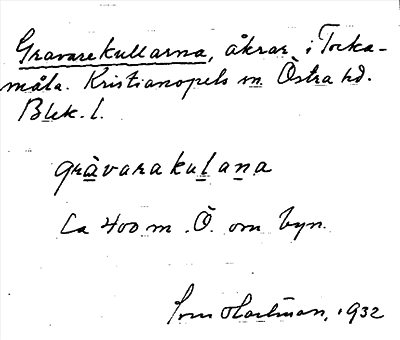 Gravarekullarna, åkrar i Torka-
måla. Kristianopels sn Östra hd.
Blek. l.
gràvarakulana
Ca 400 m Ö. om byn.
Hartman, 1932